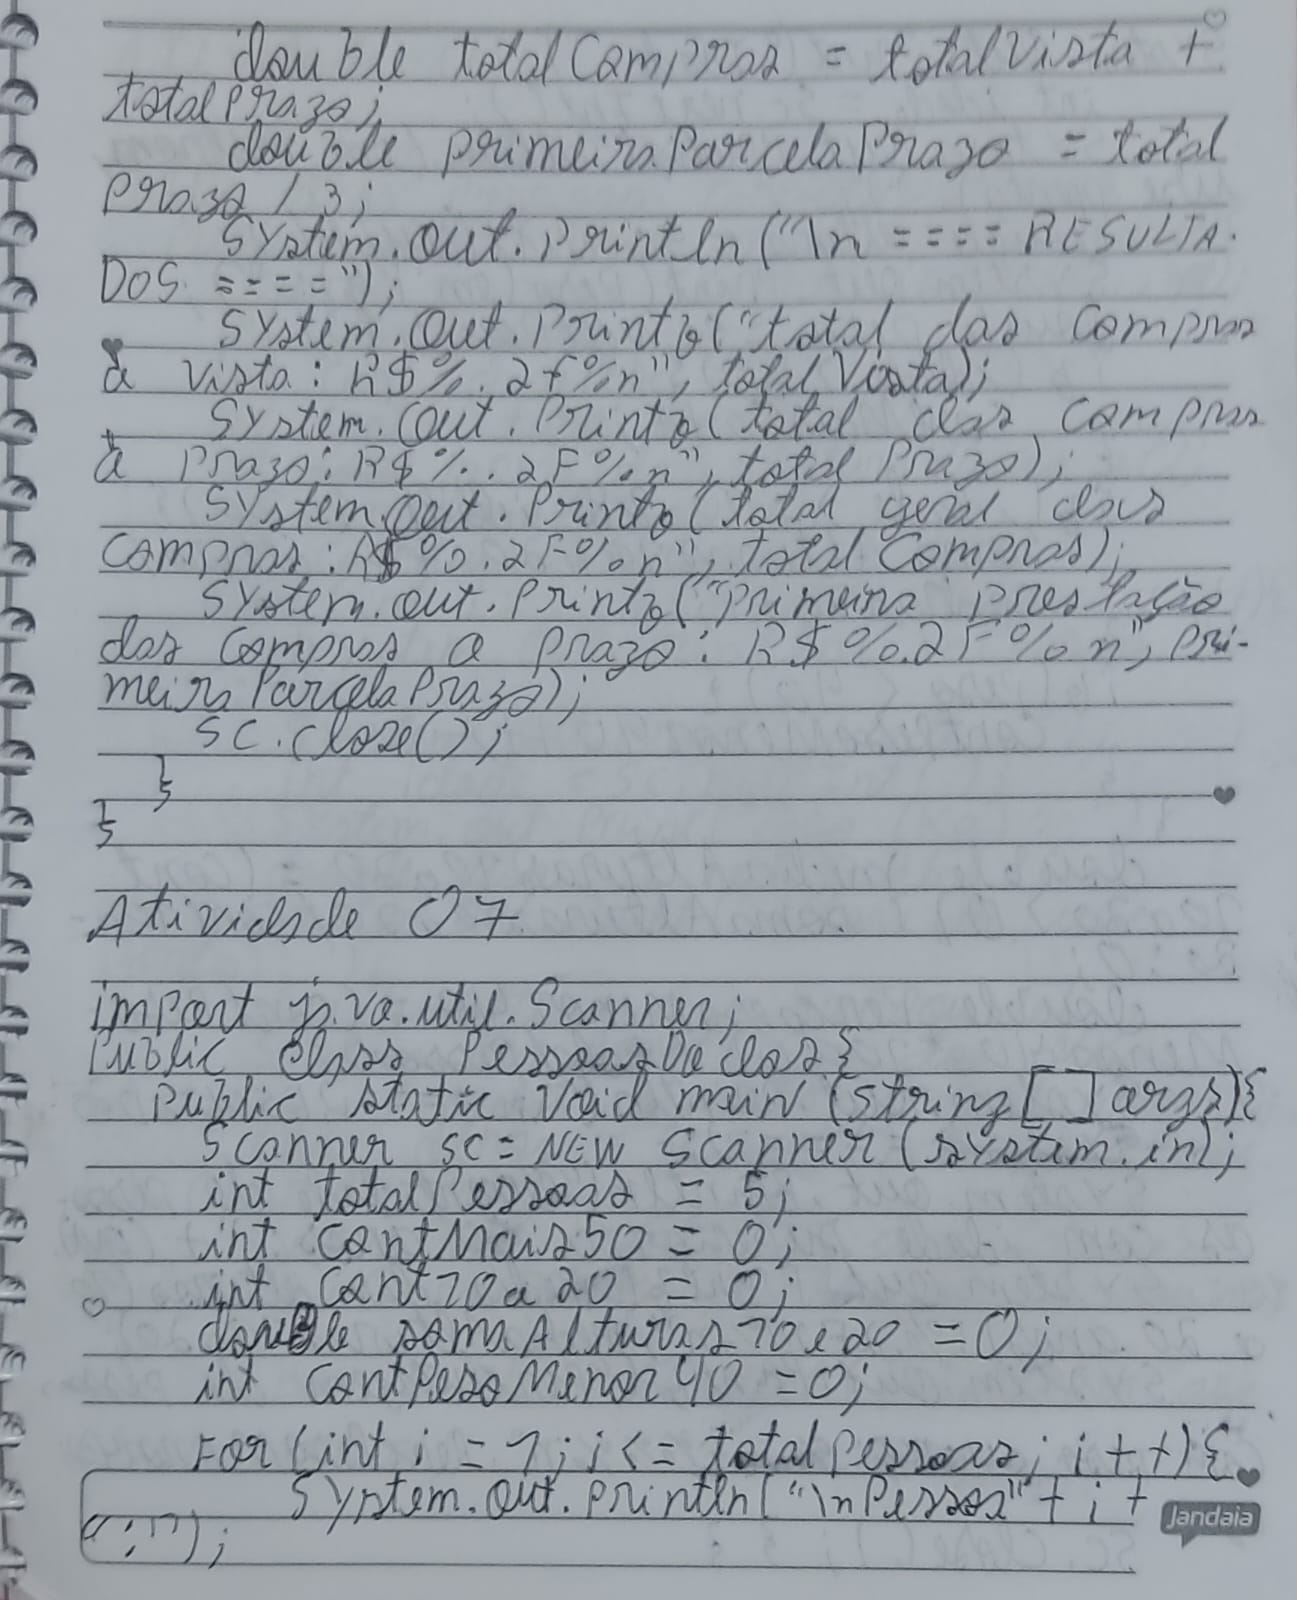 double totalCompras = totalVista +
totalPrazo;
double primeiraParcelaPrazo = total
Prazo / 3;
System.out.println("\n ==== RESULTA-
DOS ====");
System.out.printf("total das compras
à vista: R$%.2f%n", totalVista);
System.out.printf(total das compras
à prazo: R$%.2F%n", totalPrazo);
System.out.printf(total geral das
compras: R$%.2F%n", totalCompras);
System.out.printf("primeira prestação
das compras a prazo: R$%.2F%n", pri-
meiraParcelaPrazo);
sc.close();
}
}
Atividade 07
import java.util.Scanner;
Public class PessoasDados{
Public static void main (string[] args){
Scanner sc = NEW Scanner (system.in);
int totalPessoas = 5;
int contMais50 = 0;
int cont10a20 = 0;
double somaAlturas10e20 = 0;
int contPesoMenor40 = 0;
For (int i = 1; i <= totalPessoas; i++){
System.out.println("\nPessoa" + i +
":");
Jandaia